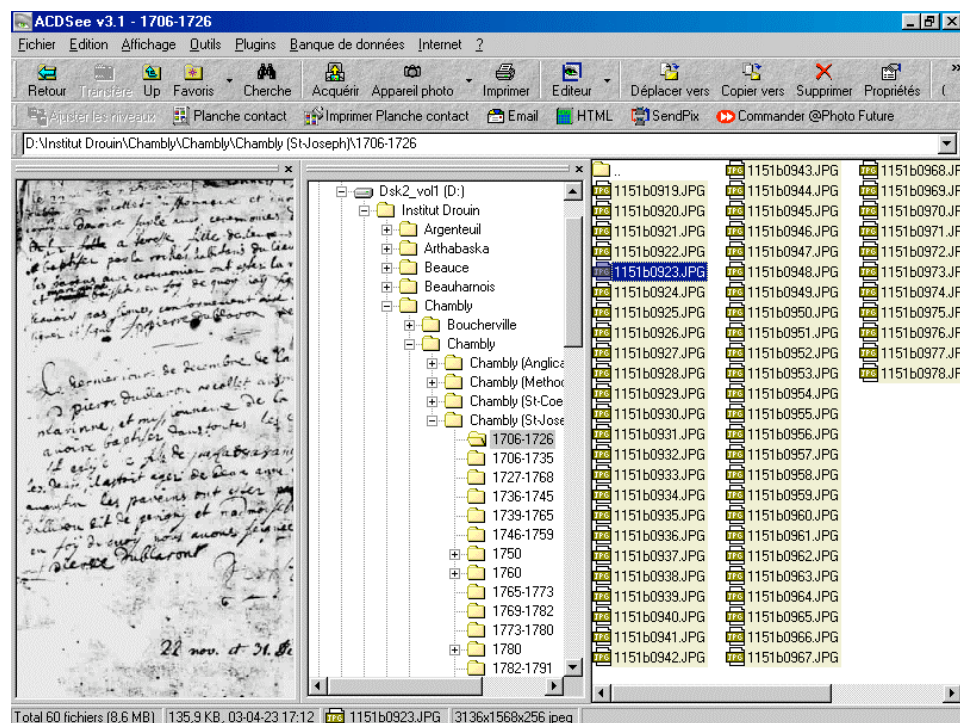 ACDSee v3.1 - 1706-1726
Fichier Edition Affichage Outils Plugins Banque de données Internet ?
Retour Transfère Up Favoris Cherche Acquérir Appareil photo Imprimer Editeur Déplacer vers Copier vers Supprimer Propriétés (
Ajuster les niveaux Planche contact Imprimer Planche contact Email HTML SendPix Commander @Photo Future
D:\Institut Drouin\Chambly\Chambly\Chambly (St-Joseph)\1706-1726
fille de
pas signer
Le dernier jour de decembre de la
pierre dublaron recollet
marinne, et missionnaire de la
les pareins ont ester
en foy de quoy nous avons
pierre dublaron
22 nov. et 31. de
Dsk2_vol1 (D:)
Institut Drouin
Argenteuil
Arthabaska
Beauce
Beauharnois
Chambly
Boucherville
Chambly
Chambly (Anglica
Chambly (Metho
Chambly (St-Coe
Chambly (St-Jose
1706-1726
1706-1735
1727-1768
1736-1745
1739-1765
1746-1759
1750
1760
1765-1773
1769-1782
1773-1780
1780
1782-1791
..
1151b0919.JPG
1151b0920.JPG
1151b0921.JPG
1151b0922.JPG
1151b0923.JPG
1151b0924.JPG
1151b0925.JPG
1151b0926.JPG
1151b0927.JPG
1151b0928.JPG
1151b0929.JPG
1151b0930.JPG
1151b0931.JPG
1151b0932.JPG
1151b0933.JPG
1151b0934.JPG
1151b0935.JPG
1151b0936.JPG
1151b0937.JPG
1151b0938.JPG
1151b0939.JPG
1151b0940.JPG
1151b0941.JPG
1151b0942.JPG
1151b0943.JPG
1151b0944.JPG
1151b0945.JPG
1151b0946.JPG
1151b0947.JPG
1151b0948.JPG
1151b0949.JPG
1151b0950.JPG
1151b0951.JPG
1151b0952.JPG
1151b0953.JPG
1151b0954.JPG
1151b0955.JPG
1151b0956.JPG
1151b0957.JPG
1151b0958.JPG
1151b0959.JPG
1151b0960.JPG
1151b0961.JPG
1151b0962.JPG
1151b0963.JPG
1151b0964.JPG
1151b0965.JPG
1151b0966.JPG
1151b0967.JPG
1151b0968.JP
1151b0969.JP
1151b0970.JP
1151b0971.JP
1151b0972.JP
1151b0973.JP
1151b0974.JP
1151b0975.JP
1151b0976.JP
1151b0977.JP
1151b0978.JP
Total 60 fichiers (8,6 MB) 135,9 KB, 03-04-23 17:12 1151b0923.JPG 3136x1568x256 jpeg